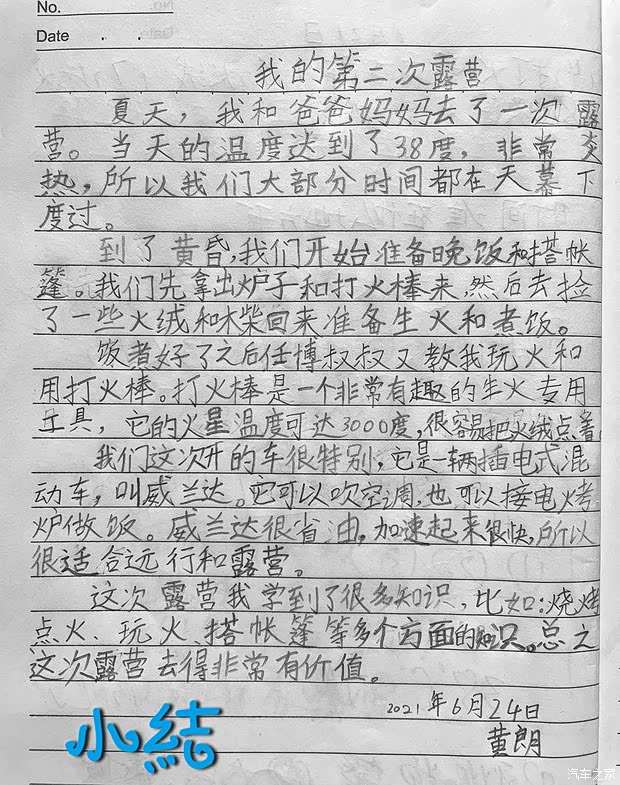 No.
Date . .
我的第二次露营
夏天，我和爸爸妈妈去了一次露
营。当天的温度达到了38度，非常炎
热，所以我们大部分时间都在天幕下
度过。
到了黄昏，我们开始准备晚饭和搭帐
篷。我们先拿出炉子和打火棒来，然后去捡
了一些火绒和木柴回来准备生火和煮饭。
饭煮好了之后任博叔叔又教我玩火和
用打火棒。打火棒是一个非常有趣的生火专用
工具，它的火星温度可达3000度，很容易把火绒点着。
我们这次开的车很特别，它是一辆插电式混
动车，叫威兰达。它可以吹空调，也可以接电烤
炉做饭。威兰达很省油，加速起来很快，所以
很适合远行和露营。
这次露营我学到了很多知识，比如：烧烤
点火、玩火、搭帐篷等多个方面的知识。总之
这次露营去得非常有价值。
2021年6月24日
黄朗
小结
汽车之家